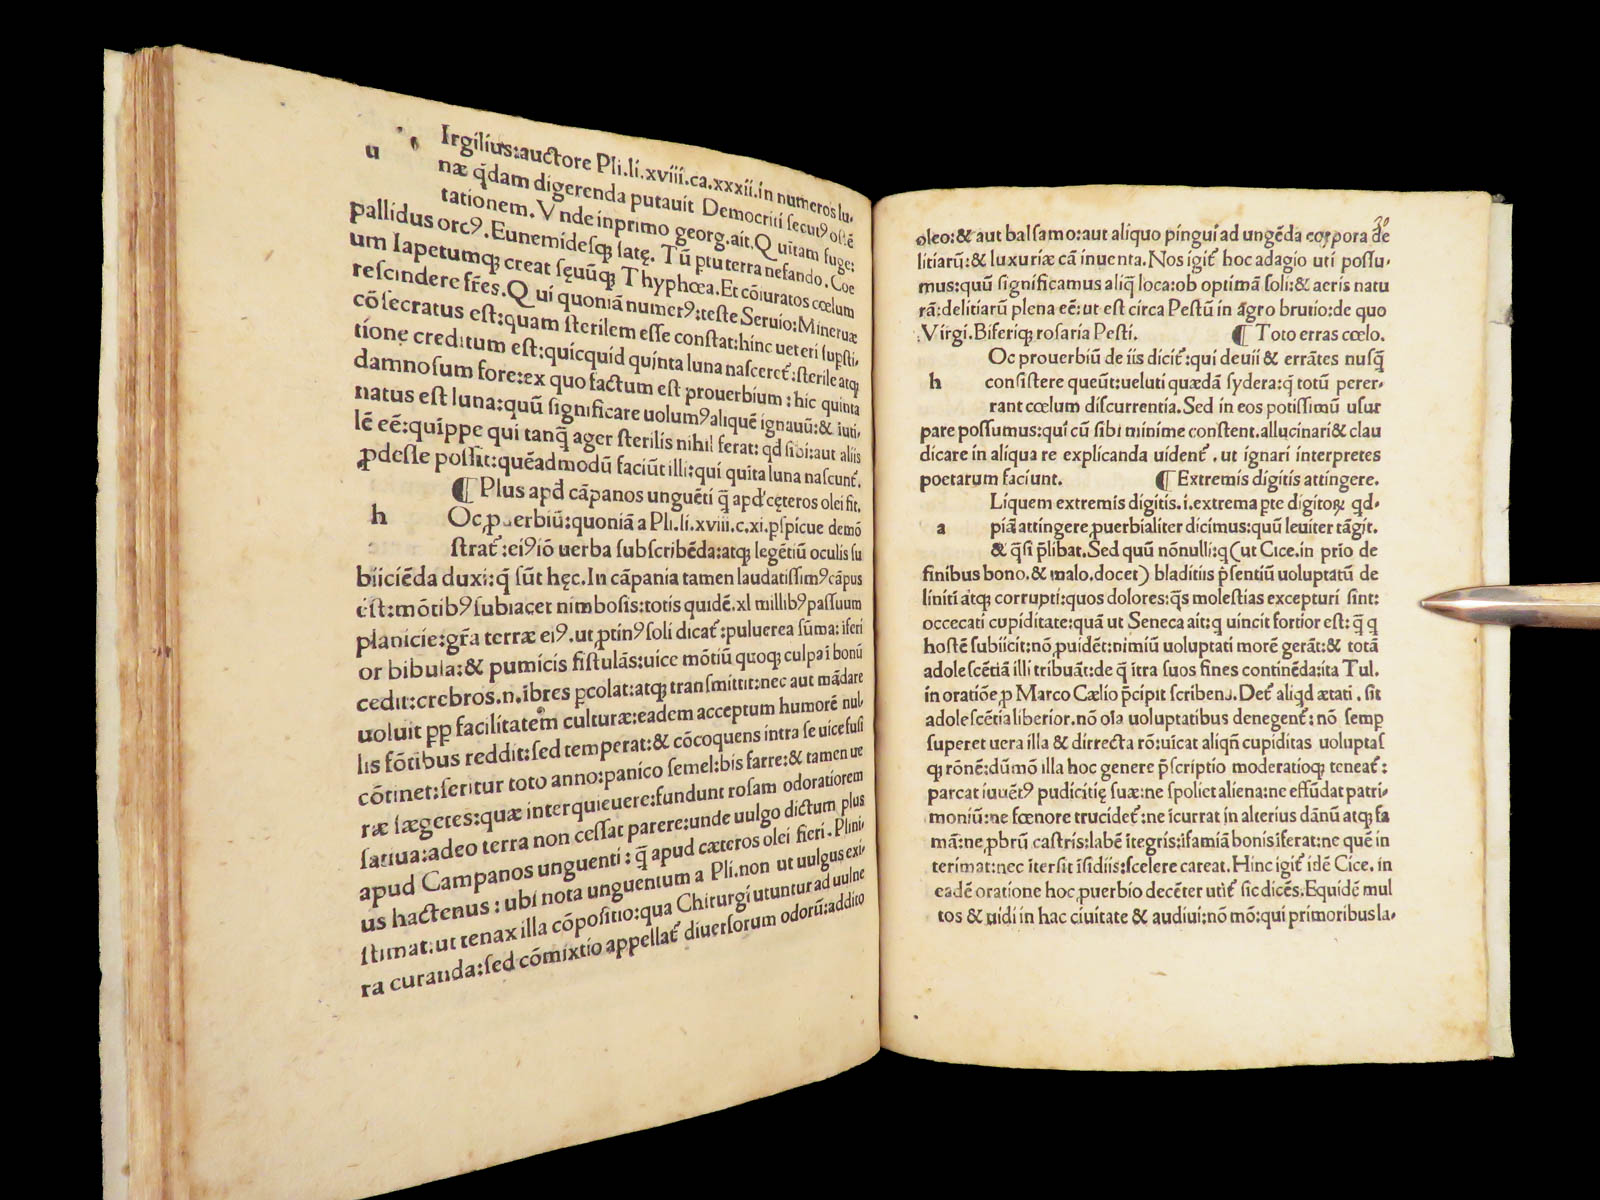 u Irgilius:auctore Pli.li.xviii.ca.xxxii.in numeros lu-
næ q̄dam digerenda putauit Democriti secutꝰ ostē
tationem. Vnde in primo georg.ait.Q uītam fuge:
pallidus orcꝰ. Eunemidesqꝫ satę. Tū ptu terra nefando. Coe
um Iapetumqꝫ creat sęuūqꝫ Thyphœa. Et cōiuratos cœlum
rescindere fr̄es. Q ui quoniā numerꝰ:teste Seruio:Mineruæ
cōsecratus est:quam sterilem esse constat:hinc ueteri supsti-
tione creditum est:quicquid quinta luna nasceret᷑:sterile atqꝫ
damnosum fore:ex quo factum est prouerbium:hic quinta
natus est luna:quū significare uolumꝰ aliquē ignauū:& iuti-
lē eē:quippe qui tanq̄ ager sterilis nihil ferat: qd sibi:aut aliis
ꝓdesse possit:quēadmodū faciūt illi:qui quīta luna nascunt᷑.
¶ Plus apd̄ cāpanos unguēti q̄ apd̄ cęteros olei fit.
h Oc ꝓuerbiū:quoniā a Pli.li.xviii.c.xi.pspicue demō
strat᷑:eiꝰ iō uerba subscribēda:atqꝫ legētiū oculis su
biiciēda duxi:q̄ sūt hęc. In cāpania tamen laudatissimꝰ cāpus
est:mōtibꝰ subiacet nimbosis:totis quidē.xl millibꝰ passuum
planicie:gr̄a terræ eiꝰ.ut ꝓtinꝰ soli dicat᷑:puluerea sūma:iferi
or bibula:& pumicis fistulās:uice mōtiū quoqꝫ culpa i bonū
cedit:crebros.n.ībres pcolat:atqꝫ transmittit:nec aut mādare
uoluit pp facilitatem culturæ:eadem acceptum humorē nul-
lis fōtibus reddit:sed temperat:& cōcoquens intra se uice fusi
cōtinet:seritur toto anno:panico semel:bis farre:& tamen ue
ræ sægetes:quæ interquieuere:fundunt rosam odoratiorem
satiua:adeo terra non cessat parere:unde uulgo dictum plus
apud Campanos unguenti: q̄ apud cæteros olei fieri. Plini-
us hactenus: ubi nota unguentum a Pli.non ut uulgus exi-
stimat:ut tenax illa cōpositio:qua Chirurgi utuntur ad uulne
ra curanda:sed cōmixtio appellat᷑ diuersorum odorū:addito
oleo:& aut balsamo:aut aliquo pingui ad ungēda corpora de
litiarū:& luxuriæ cā inuenta. Nos igit᷑ hoc adagio uti possu-
mus:quū significamus aliq̄ loca:ob optimā soli:& aeris natu
rā:delitiarū plena eē:ut est circa Pestū in agro brutio:de quo
Virgi. Biferiqꝫ rosaria Pesti. ¶ Toto erras cœlo.
h Oc prouerbiū de iis dicit᷑:qui deuii & errātes nusq̄
consistere queūt:ueluti quædā sydera:q̄ totū perer-
rant cœlum discurrentia. Sed in eos potissimū usur
pare possumus:qui cū sibi minime constent.allucinari & clau
dicare in aliqua re explicanda uident᷑.ut ignari interpretes
poetarum faciunt. ¶ Extremis digitis attingere.
a Liquem extremis digitis.i.extrema pte digitoꝝ qd-
piā attingere ꝓuerbialiter dicimus:quū leuiter tāgit.
& q̄si p̄libat. Sed quū nōnulli:q (ut Cice.in prio de
finibus bono.& malo.docet) bladitiis p̄sentiū uoluptatū de
liniti atqꝫ corrupti:quos dolores:q̄s molestias excepturi sint:
occecati cupiditate:quā ut Seneca ait:q uincit fortior est:q̄ q
hostē subiicit:nō ꝓuidēt:nimiū uoluptati morē gerāt:& totā
adolescētiā illi tribuāt:de q̄ itra suos fines continēda:ita Tul.
in oratiōe ꝓ Marco Cælio p̄cipit scribens. Det᷑ aliqd ætati.sit
adolescētia liberior.nō oīa uoluptatibus denegent᷑: nō semp
superet uera illa & dirrecta rō:uīcat aliqn̄ cupiditas uoluptas
qꝫ rōnē:dūmō illa hoc genere p̄scriptio moderatioqꝫ teneat᷑:
parcat iuuētꝰ pudicitię suæ:ne spoliet aliena:ne effūdat patri-
moniū:ne fœnore trucidet᷑:ne īcurrat in alterius dānū atqꝫ fa
mā:ne ꝓbrū castris:labē ītegris:īfamiā bonis īferat:ne quē in
terimat:nec ītersit īsidiis:scelere careat. Hinc igit᷑ idē Cice.in
eadē oratione hoc ꝓuerbio decēter utit᷑ sic dicēs. Equidē mul
tos & uidi in hac ciuitate & audiui:nō mō:qui primoribus la-